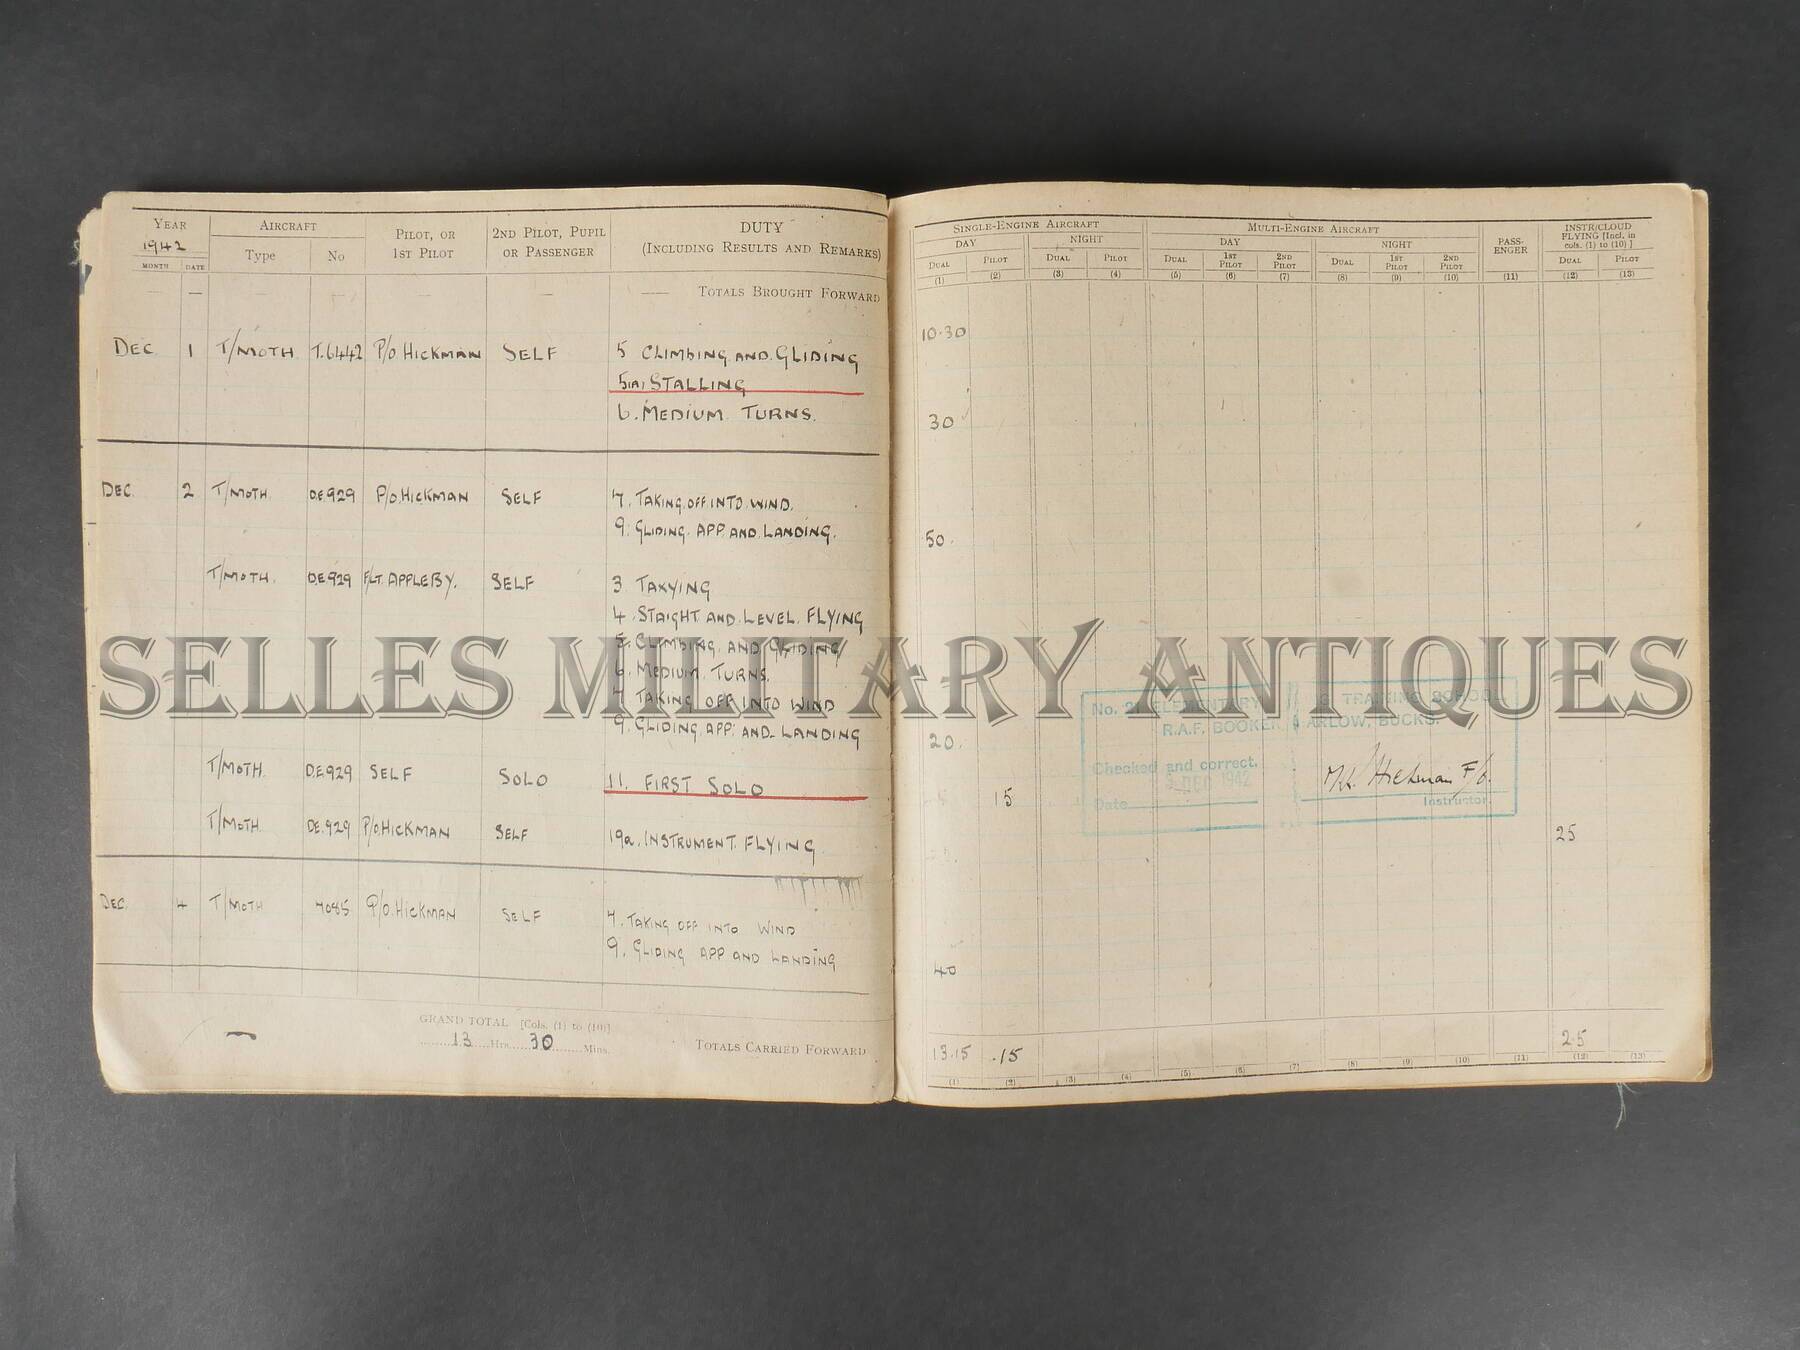 YEAR AIRCRAFT PILOT, OR 1ST PILOT 2ND PILOT, PUPIL OR PASSENGER DUTY (INCLUDING RESULTS AND REMARKS)
1942
MONTH DATE Type No
— — — — — — —— TOTALS BROUGHT FORWARD
DEC 1 T/MOTH T.6442 P/O HICKMAN SELF 5 CLIMBING AND GLIDING
5(A) STALLING
6. MEDIUM TURNS.
DEC. 2 T/MOTH. DE929 P/O.HICKMAN SELF 7. TAKING OFF INTO WIND.
9. GLIDING APP AND LANDING.
T/MOTH. D.E929 F/LT. APPLEBY. SELF 3 TAXYING
4. STAIGHT AND LEVEL FLYING
5. CLIMBING AND GLIDING
6. MEDIUM TURNS.
7 TAKING OFF INTO WIND
9. GLIDING APP. AND LANDING
T/MOTH. D.E929 SELF SOLO 11. FIRST SOLO
T/MOTH DE.929 P/O.HICKMAN SELF 19a. INSTRUMENT FLYING
DEC. 4 T/MOTH 7085 P/O.HICKMAN SELF 7. TAKING OFF INTO WIND
9. GLIDING APP AND LANDING
GRAND TOTAL [Cols. (1) to (10)]
13 Hrs. 30 Mins. TOTALS CARRIED FORWARD
SINGLE-ENGINE AIRCRAFT MULTI-ENGINE AIRCRAFT PASS-ENGER INSTR/CLOUD FLYING [Incl. in cols. (1) to (10)]
DAY NIGHT DAY NIGHT
DUAL PILOT DUAL PILOT DUAL 1ST PILOT 2ND PILOT DUAL 1ST PILOT 2ND PILOT DUAL PILOT
(1) (2) (3) (4) (5) (6) (7) (8) (9) (10) (11) (12) (13)
10.30
30
50.
20.
15
25
40
13.15 .15 25
(1) (2) (3) (4) (5) (6) (7) (8) (9) (10) (11) (12) (13)
No. 21 ELEMENTARY G TRAINING SCHOOL
R.A.F. BOOKER ARLOW, BUCKS.
Checked and correct.
DEC 1942
Date
Hickman F/O.
Instructor.
SELLES MILITARY ANTIQUES